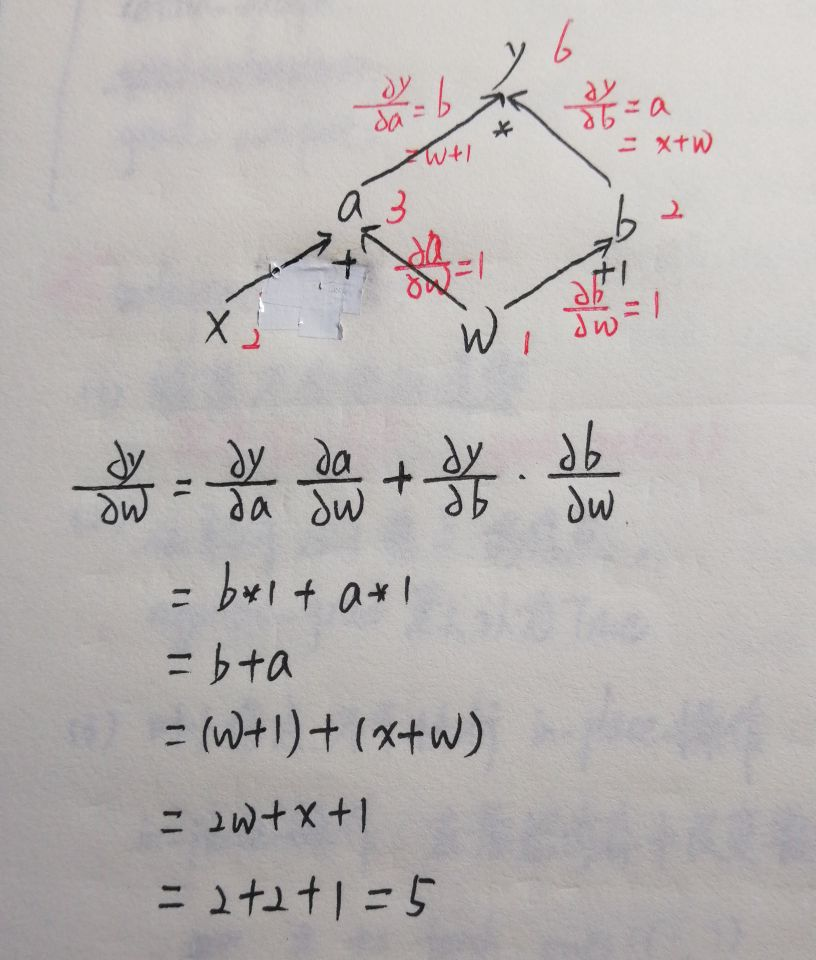 y 6
∂y/∂a = b
= w+1
*
∂y/∂b = a
= x+w
a 3
+
∂a/∂w = 1
b 2
+1
∂b/∂w = 1
x 2
w 1
∂y/∂w = ∂y/∂a ∂a/∂w + ∂y/∂b · ∂b/∂w
= b*1 + a*1
= b+a
= (w+1)+(x+w)
= 2w+x+1
= 2+2+1=5